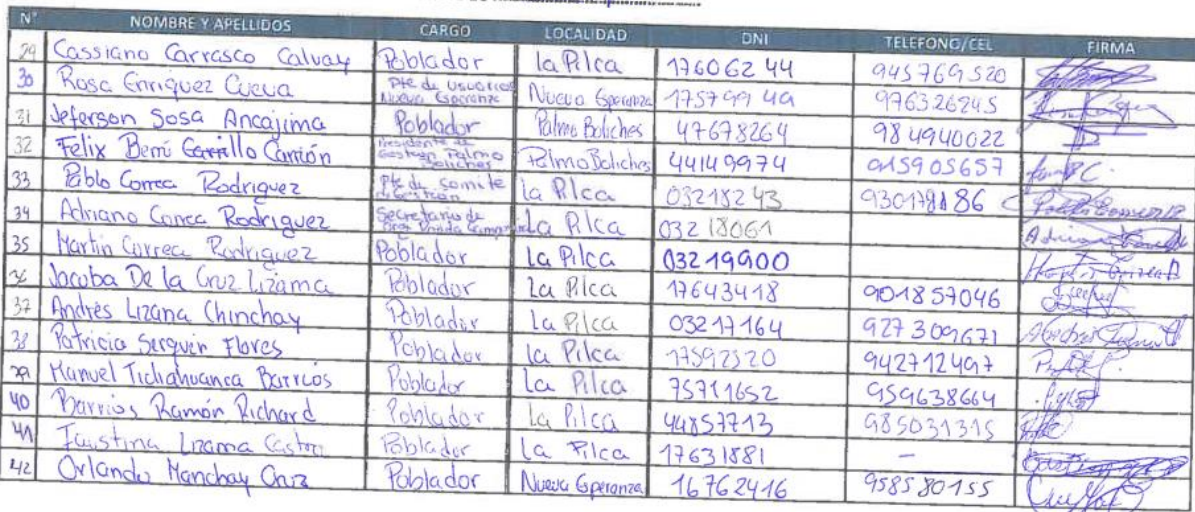 N° NOMBRE Y APELLIDOS CARGO LOCALIDAD DNI TELEFONO/CEL FIRMA
29 Cassiano Carrasco Calvay Poblador la Pilca 17606244 945769520
30 Rosa Enriquez Cueva Pte de Usuarios Nueva Esperanza Nueva Esperanza 17579949 976326245
31 Jeferson Sosa Ancajima Poblador Palmo Boliches 47678264 984940022
32 Felix Berrú Carrión Presidente de Gestion Palmo Boliches Palmo Boliches 44149974 915905657
33 Pablo Correa Rodriguez Pte de comite de Gestion la Pilca 03218243 930178186
34 Adriano Correa Rodriguez Secretario de La Pilca 03218061
35 Martin Correa Rodriguez Poblador La Pilca 03219900
36 Jacoba De la Cruz Lizama Poblador La Pilca 17643418 901857046
37 Andrés Lizana Chinchay Poblador La Pilca 03217164 927309671
38 Patricia Serquen Flores Poblador La Pilca 17592520 942712497
39 Manuel Ticliahuanca Barrios Poblador La Pilca 75711652 959638664
40 Barrios Ramón Richard Poblador La Pilca 44857713 985031315
41 Faustina Lizama Castro Poblador La Pilca 17631881 —
42 Orlando Manchay Cruz Poblador Nueva Esperanza 16762416 958580155